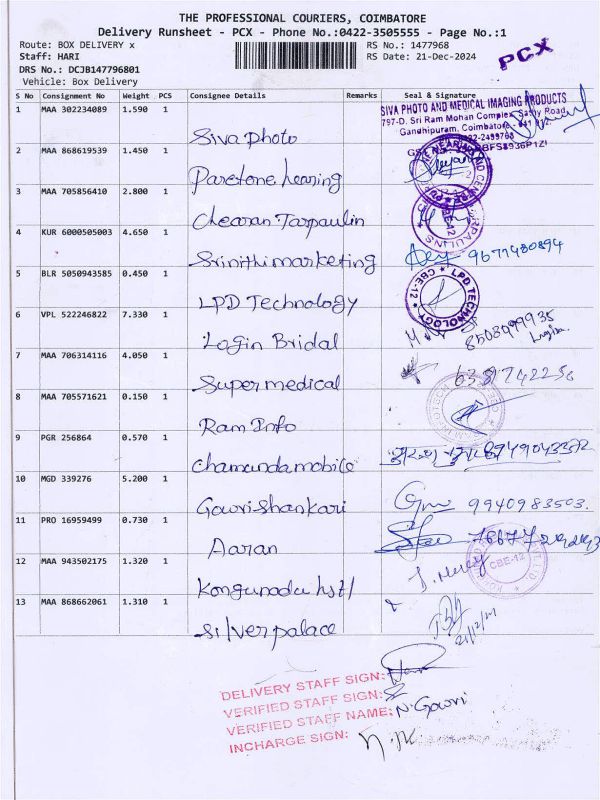 THE PROFESSIONAL COURIERS, COIMBATORE
Delivery Runsheet - PCX - Phone No.:0422-3505555 - Page No.:1
Route: BOX DELIVERY x RS No.: 1477968
Staff: HARI RS Date: 21-Dec-2024
PCX
DRS No.: DCJB147796801
Vehicle: Box Delivery
S No Consignment No Weight PCS Consignee Details Remarks Seal & Signature
1 MAA 302234089 1.590 1 Siva photo
SIVA PHOTO AND MEDICAL IMAGING PRODUCTS
797-D. Sri Ram Mohan Complex, Sathy Road,
Gandhipuram, Coimbatore
2 MAA 868619539 1.450 1 Paretone hearing
3 MAA 705856410 2.800 1 Chearan Tarpaulin
4 KUR 6000505003 4.650 1 Srinithi marketing 9677480894
5 BLR 5050943585 0.450 1 LPD Technology
LPD TECHNOLOGY CBE-12
6 VPL 522246822 7.330 1 Login Bridal
7 MAA 706314116 4.050 1 Super medical
8 MAA 705571621 0.150 1 Ram Info
9 PGR 256864 0.570 1 Chamunda mobile
10 MGD 339276 5.200 1 Gowri Shankari 9940983503.
11 PRO 16959499 0.730 1 Aaran
12 MAA 943502175 1.320 1 Kongunadu hstl
CBE-12
13 MAA 868662061 1.310 1 Silver palace
DELIVERY STAFF SIGN:
VERIFIED STAFF SIGN:
VERIFIED STAFF NAME: N. Gowri
INCHARGE SIGN: